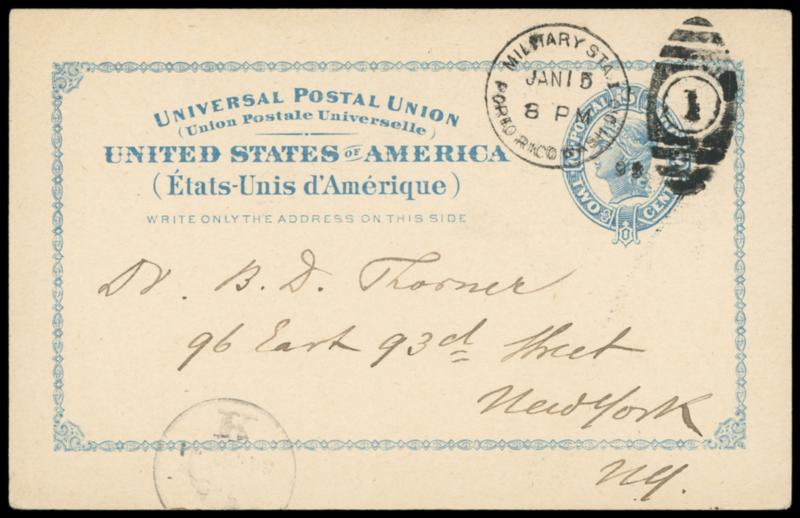 UNIVERSAL POSTAL UNION
(Union Postale Universelle)
UNITED STATES OF AMERICA
(États-Unis d'Amérique)
WRITE ONLY THE ADDRESS ON THIS SIDE
MILITARY STA. 1
JAN 15
8 PM
PORTO RICO
1
POSTAL
TWO CENT
Dr. B. D. Thorner
96 East 93d Street
New York
NY.
K